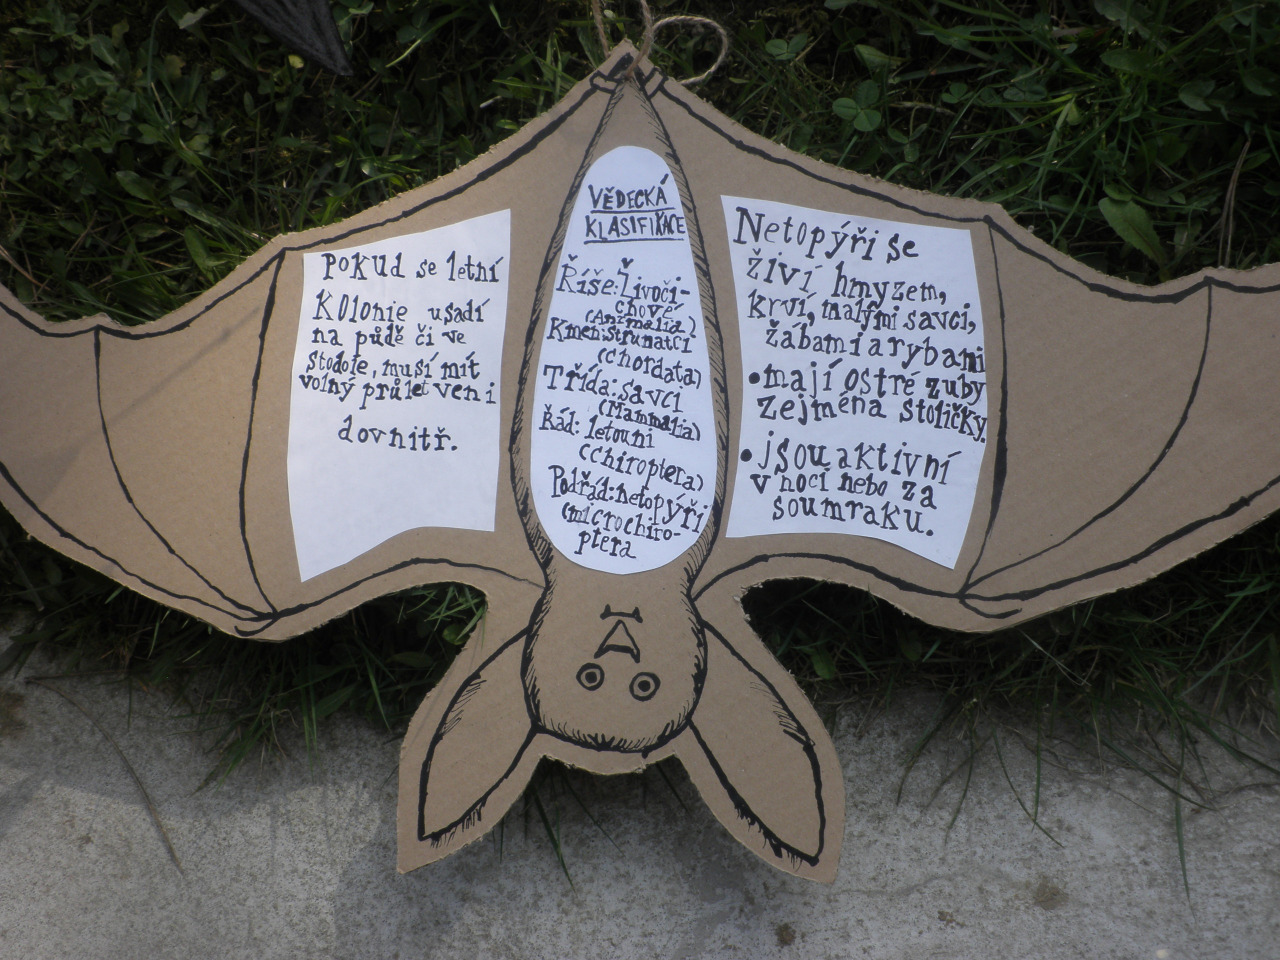 Pokud se letní
Kolonie usadí
na půdě či ve
stodole, musí mít
volný průlet ven i
dovnitř.
VĚDECKÁ
KLASIFIKACE
Říše: Živoči-
chové
(Animalia)
Kmen: strunatci
(chordata)
Třída: savci
(Mammalia)
Řád: letouni
(chiroptera)
Podřád: netopýři
(microchiro-
ptera
Netopýři se
živí hmyzem,
krví, malými savci,
žábami a rybami
•mají ostré zuby
zejména stoličky.
•jsou aktivní
v noci nebo za
soumraku.